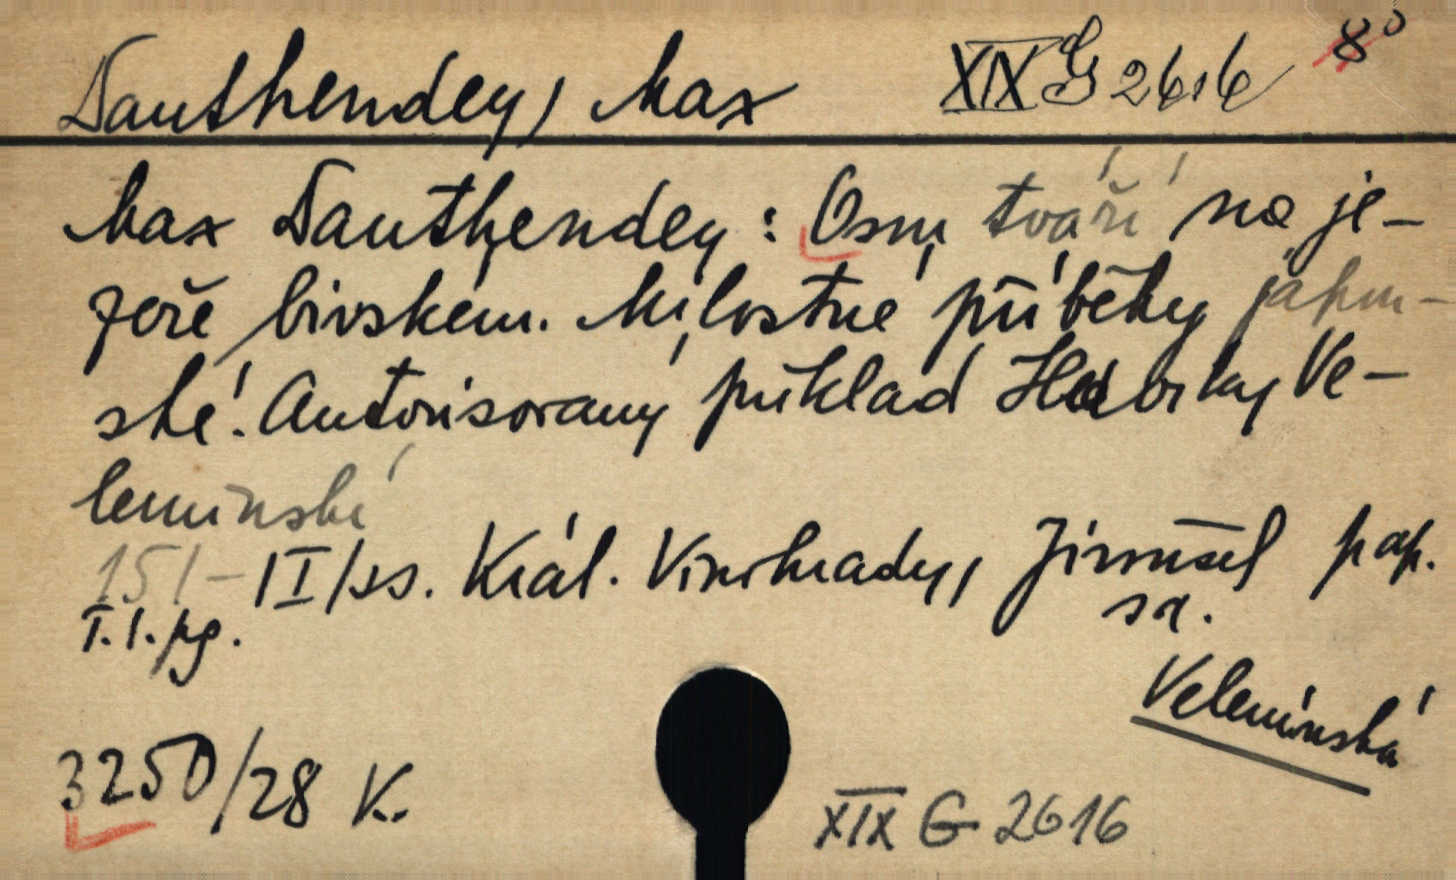 Dauthendey, Max XIX G 2616 8°
Max Dauthendey: Osm tváří na je-
zeře bivském. Milostné příběhy japon-
ské. Autorisovaný překlad Hedviky Ve-
lemínské
151-II/ss. Král. Vinohrady, Jirousel pap.
T.l.pg. sa.
Velemínská
3250/28 K.
XIX G 2616